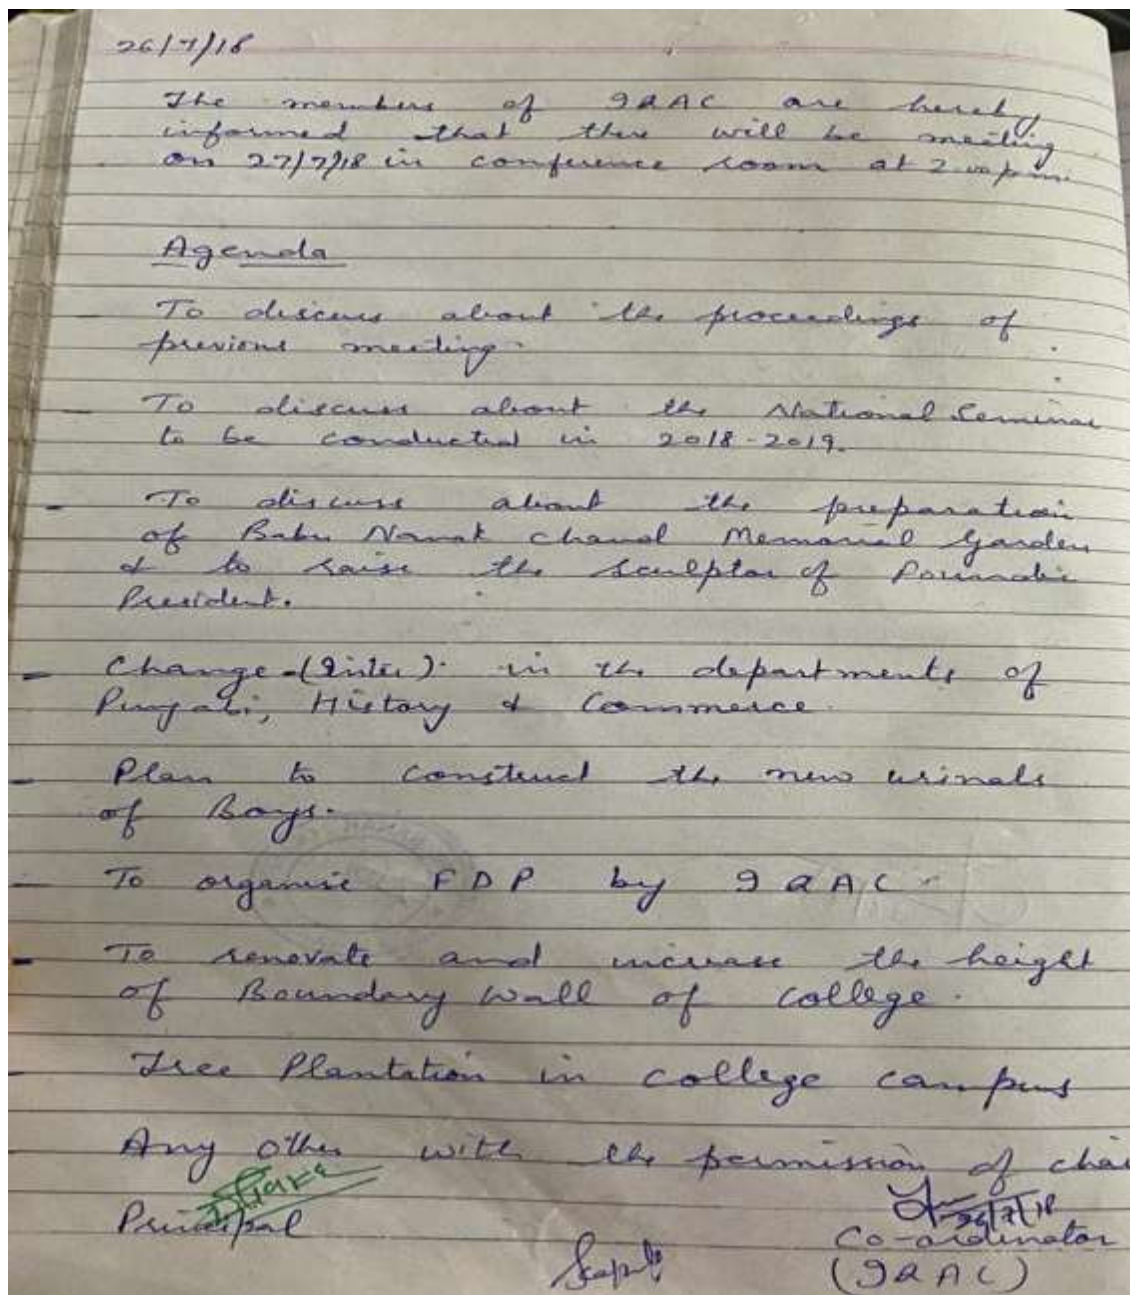 26/7/18
The members of IQAC are hereby
informed that there will be meeting
on 27/7/18 in conference room at 2.00 pm.
Agenda
- To discuss about the proceedings of
previous meeting.
- To discuss about the National Seminar
to be conducted in 2018-2019.
- To discuss about the preparation
of Babu Nanak Chand Memorial Garden
& to raise the sculptor of
President.
- Change (Inter) in the departments of
Punjabi, History & Commerce.
- Plan to construct the new urinals
of Boys.
- To organise FDP by IQAC.
- To renovate and increase the height
of Boundary Wall of College.
- Tree Plantation in college campus
- Any other with the permission of chai
Principal
26/7/18
Co-ordinator
(IQAC)